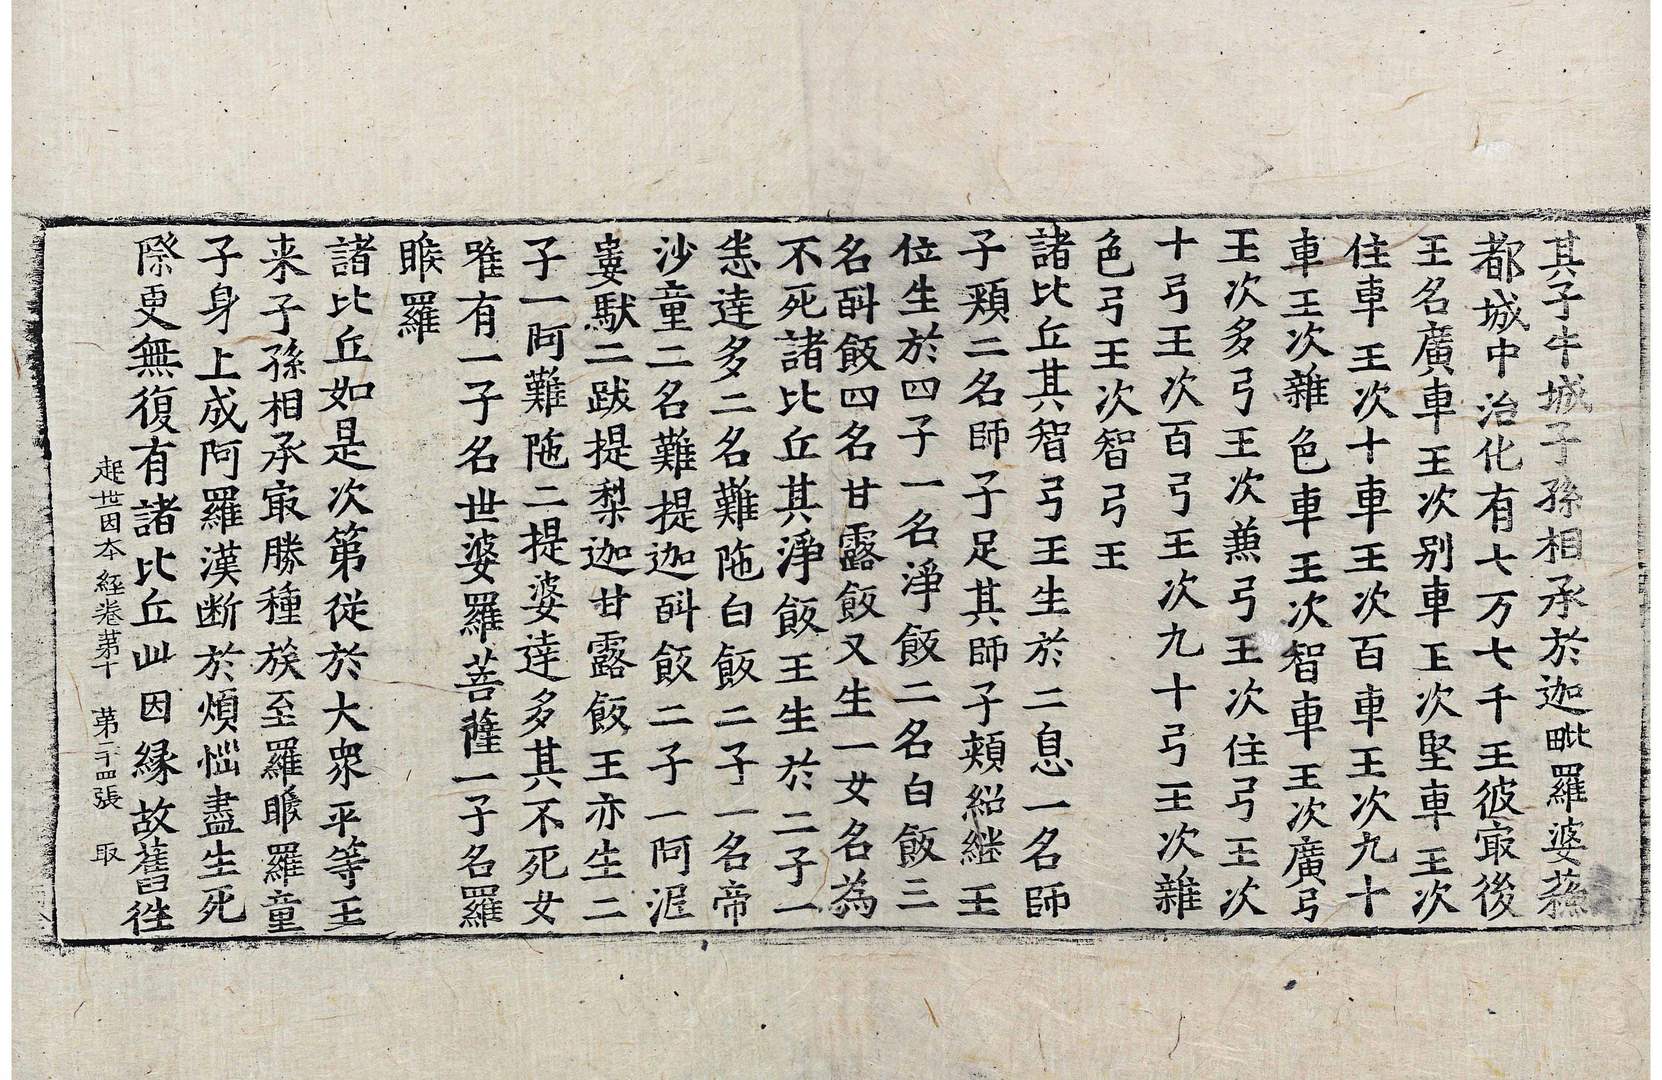 其子牛城子孫相承於迦毗羅婆蘓
都城中治化有七万七千王彼㝡後
王名廣車王次别車王次堅車王次
住車王次十車王次百車王次九十
車王次雜色車王次智車王次廣弓
王次多弓王次兼弓王次住弓王次
十弓王次百弓王次九十弓王次雜
色弓王次智弓王
諸比丘其智弓王生於二息一名師
子頰二名師子足其師子頰紹継王
位生於四子一名淨飯二名白飯三
名䤈飯四名甘露飯又生一女名為
不死諸比丘其淨飯王生於二子一
悉達多二名難陁白飯二子一名帝
沙童二名難提迦䤈飯二子一阿泥
婁䭾二跋提梨迦甘露飯王亦生二
子一阿難陁二提婆達多其不死女
唯有一子名世婆羅菩薩一子名羅
睺羅
諸比丘如是次第從於大衆平等王
来子孫相承㝡勝種族至羅睺羅童
子身上成阿羅漢断於煩惱盡生死
際更無復有諸比丘此因縁故舊徃
起世因本經卷第十 第二十四張 取